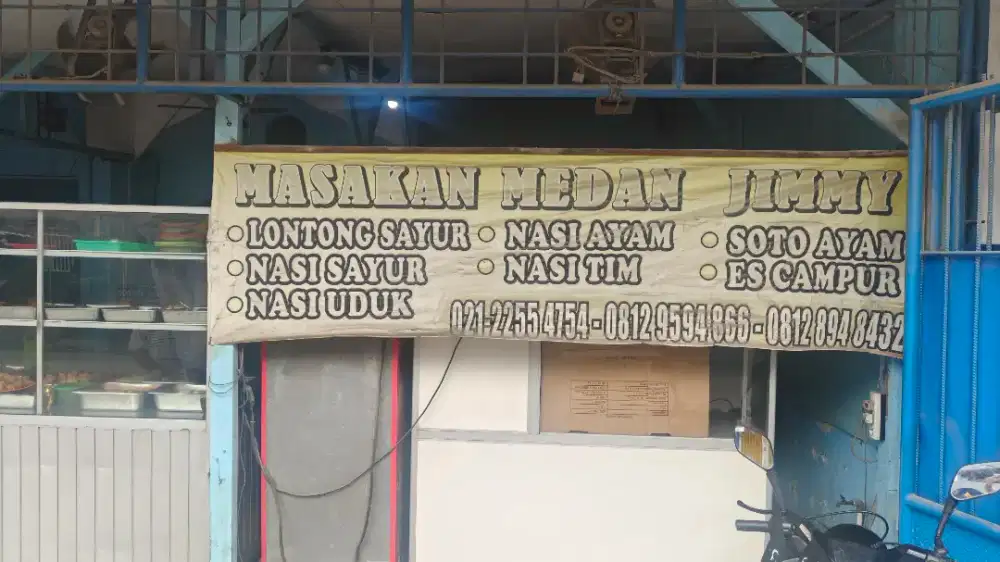 MASAKAN MEDAN JIMMY
LONTONG SAYUR
NASI SAYUR
NASI UDUK
NASI AYAM
NASI TIM
SOTO AYAM
ES CAMPUR
021-22554754 - 08129594866 - 08128948432